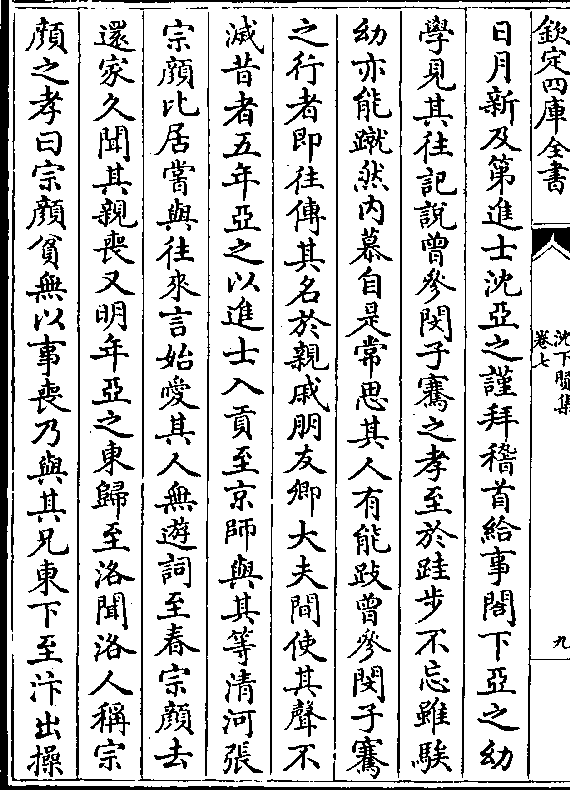 欽定四庫全書
沈下賢集
卷七
九
日月新及第進士沈亞之謹拜稽首給事閤下亞之幼
學見其往記說曾參閔子騫之孝至於跬步不忘雖騃
幼亦能蹴然内慕自是常思其人有能跂曾參閔子騫
之行者即往傳其名於親戚朋友卿大夫間使其聲不
滅昔者五年亞之以進士入貢至京師與其等清河張
宗顔比居嘗與往來言始噯其人無遊詞至春宗顔去
還家久聞其親喪又明年亞之東歸至洛聞洛人稱宗
顔之孝曰宗顔貧無以事喪乃與其兄東下至汴出操